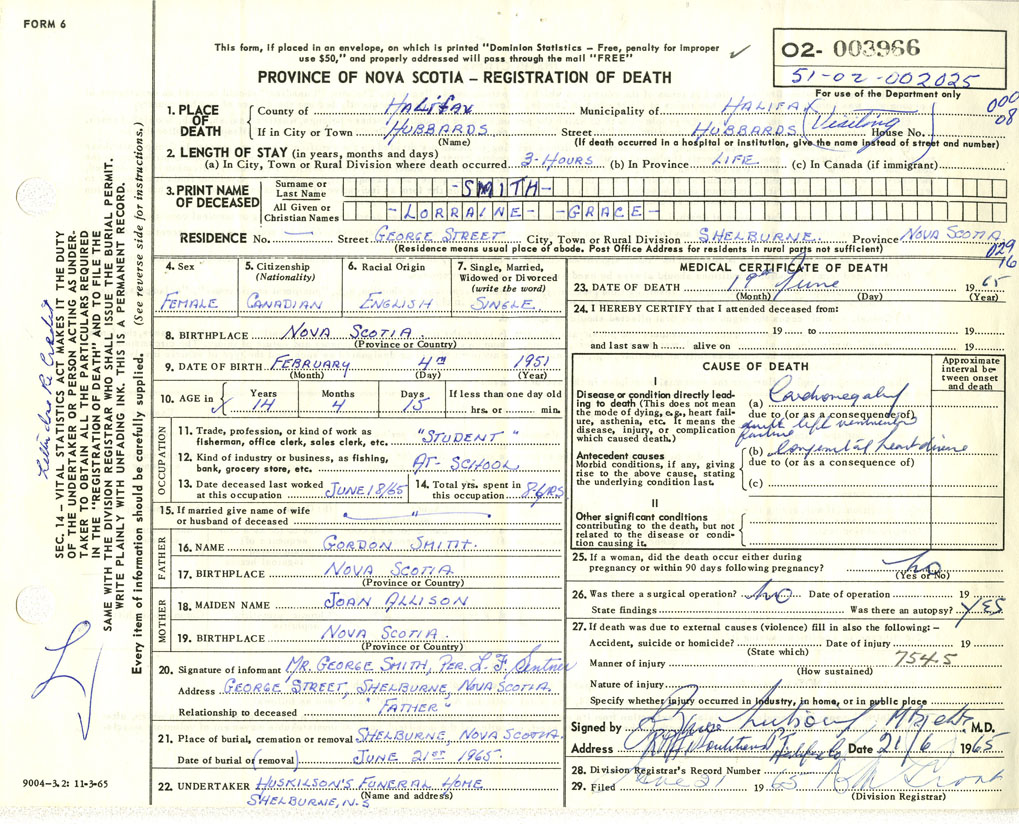 FORM 6
This form, if placed in an envelope, on which is printed "Dominion Statistics – Free, penalty for improper
use $50," and properly addressed will pass through the mail "FREE"
02- 003966
51-02-002025
For use of the Department only
PROVINCE OF NOVA SCOTIA – REGISTRATION OF DEATH
000
08
1. PLACE OF DEATH
County of HALIFAX Municipality of HALIFAX
If in City or Town HUBBARDS Street HUBBARDS (Visiting) House No.
(Name) (If death occurred in a hospital or institution, give the name instead of street and number)
2. LENGTH OF STAY (in years, months and days)
(a) In City, Town or Rural Division where death occurred 3-HOURS (b) In Province LIFE (c) In Canada (if immigrant)
3. PRINT NAME OF DECEASED
Surname or Last Name -SMITH-
All Given or Christian Names -LORRAINE- -GRACE-
RESIDENCE No. — Street GEORGE STREET City, Town or Rural Division SHELBURNE. Province NOVA SCOTIA
(Residence means usual place of abode. Post Office Address for residents in rural parts not sufficient)
029
16
4. Sex
FEMALE
5. Citizenship (Nationality)
CANADIAN
6. Racial Origin
ENGLISH
7. Single, Married, Widowed or Divorced (write the word)
SINGLE.
8. BIRTHPLACE NOVA SCOTIA.
(Province or Country)
9. DATE OF BIRTH FEBRUARY 4TH 1951
(Month) (Day) (Year)
10. AGE in Years Months Days If less than one day old
14 4 15 hrs. or min.
OCCUPATION
11. Trade, profession, or kind of work as fisherman, office clerk, sales clerk, etc. "STUDENT"
12. Kind of industry or business, as fishing, bank, grocery store, etc. AT-SCHOOL
13. Date deceased last worked at this occupation JUNE 18/65
14. Total yrs. spent in this occupation 8-YRS
15. If married give name of wife or husband of deceased
FATHER
16. NAME GORDON SMITH.
17. BIRTHPLACE NOVA SCOTIA
(Province or Country)
MOTHER
18. MAIDEN NAME JOAN ALLISON
19. BIRTHPLACE NOVA SCOTIA.
(Province or Country)
20. Signature of informant MR. GEORGE SMITH, PER. L. F. Sentner
Address GEORGE STREET, SHELBURNE, NOVA SCOTIA.
Relationship to deceased "FATHER"
21. Place of burial, cremation or removal SHELBURNE, NOVA SCOTIA.
Date of burial or (removal) JUNE 21ST 1965.
22. UNDERTAKER HUSKILSON'S FUNERAL HOME
(Name and address)
SHELBURNE, N.S
MEDICAL CERTIFICATE OF DEATH
23. DATE OF DEATH 19th June 1965
(Month) (Day) (Year)
24. I HEREBY CERTIFY that I attended deceased from:
19 to 19
and last saw h alive on 19
CAUSE OF DEATH
Approximate interval between onset and death
I
Disease or condition directly leading to death (This does not mean the mode of dying, e.g., heart failure, asthenia, etc. it means the disease, injury, or complication which caused death.)
(a) Cardiomegaly
due to (or as a consequence of)
acute left ventricular failure
Antecedent causes
Morbid conditions, if any, giving rise to the above cause, stating the underlying condition last.
(b) Congenital heart disease
due to (or as a consequence of)
(c)
II
Other significant conditions contributing to the death, but not related to the disease or condition causing it.
25. If a woman, did the death occur either during pregnancy or within 90 days following pregnancy? No
(Yes or No)
26. Was there a surgical operation? No Date of operation 19
State findings Was there an autopsy? YES
27. If death was due to external causes (violence) fill in also the following: –
Accident, suicide or homicide? Date of injury 19
(State which)
Manner of injury 7545
(How sustained)
Nature of injury
Specify whether injury occurred in Industry, in home, or in public place
Signed by M.D.
Address Halifax Date 21/6 1965
28. Division Registrar's Record Number
29. Filed June 21 1965
(Division Registrar)
SEC. 14 – VITAL STATISTICS ACT MAKES IT THE DUTY
OF THE UNDERTAKER OR PERSON ACTING AS UNDER-
TAKER TO OBTAIN ALL THE PARTICULARS REQUIRED
IN THE "REGISTRATION OF DEATH" AND TO FILE THE
SAME WITH THE DIVISION REGISTRAR WHO SHALL ISSUE THE BURIAL PERMIT.
WRITE PLAINLY WITH UNFADING INK. THIS IS A PERMANENT RECORD.
Every item of information should be carefully supplied. (See reverse side for instructions.)
9004–3.2: 11-3-65